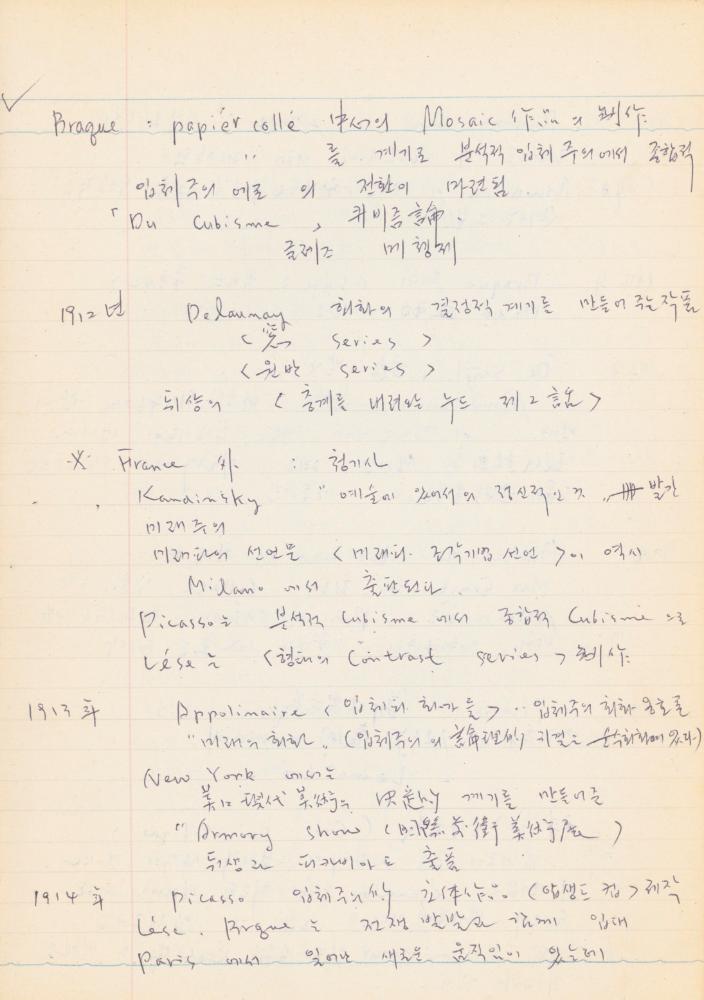 Braque : papiér collé 中心의 Mosaic 作品의 制作
〃 를 계기로 분석적 입체주의에서 종합적
입체주의에로의 전환이 마련됨
「Du Cubisme」 퀴비즘論.
글레즈 메챙제
1912년 Delaunay 회화의 결정적 계기를 만들어주는 작품
<窓 series>
<원반 series>
뒤샹의 <층계를 내려오는 누드 제2>
※ France 에 :
Kandinsky "예술에 있어서의 정신적인 것" 발간
미래주의
미래파의 선언문 <미래파 조각기법 선언>이 역시
Milano에서 출판된다.
Picasso는 분석적 Cubisme에서 종합적 Cubisme으로
Lése는 <형태의 Contrast series> 制作
1913年 Appolinaire <입체파 화가들> ‥ 입체주의 회화 옹호론
"미래의 회화" (입체주의의 論理的 귀결은 순수회화에 있다)
New York에서는
美国 現代美術의 決定的 계기를 만들어준
"Armory show (国際前衛美術展)
뒤샹과 피카비아도 출품
1914年 Picasso 입체주의的 立体作品 <압생트 컵> 제작
Lése. Brque는 전쟁 발발과 함께 입대
Paris에서 일어난 새로운 움직임이 있는데